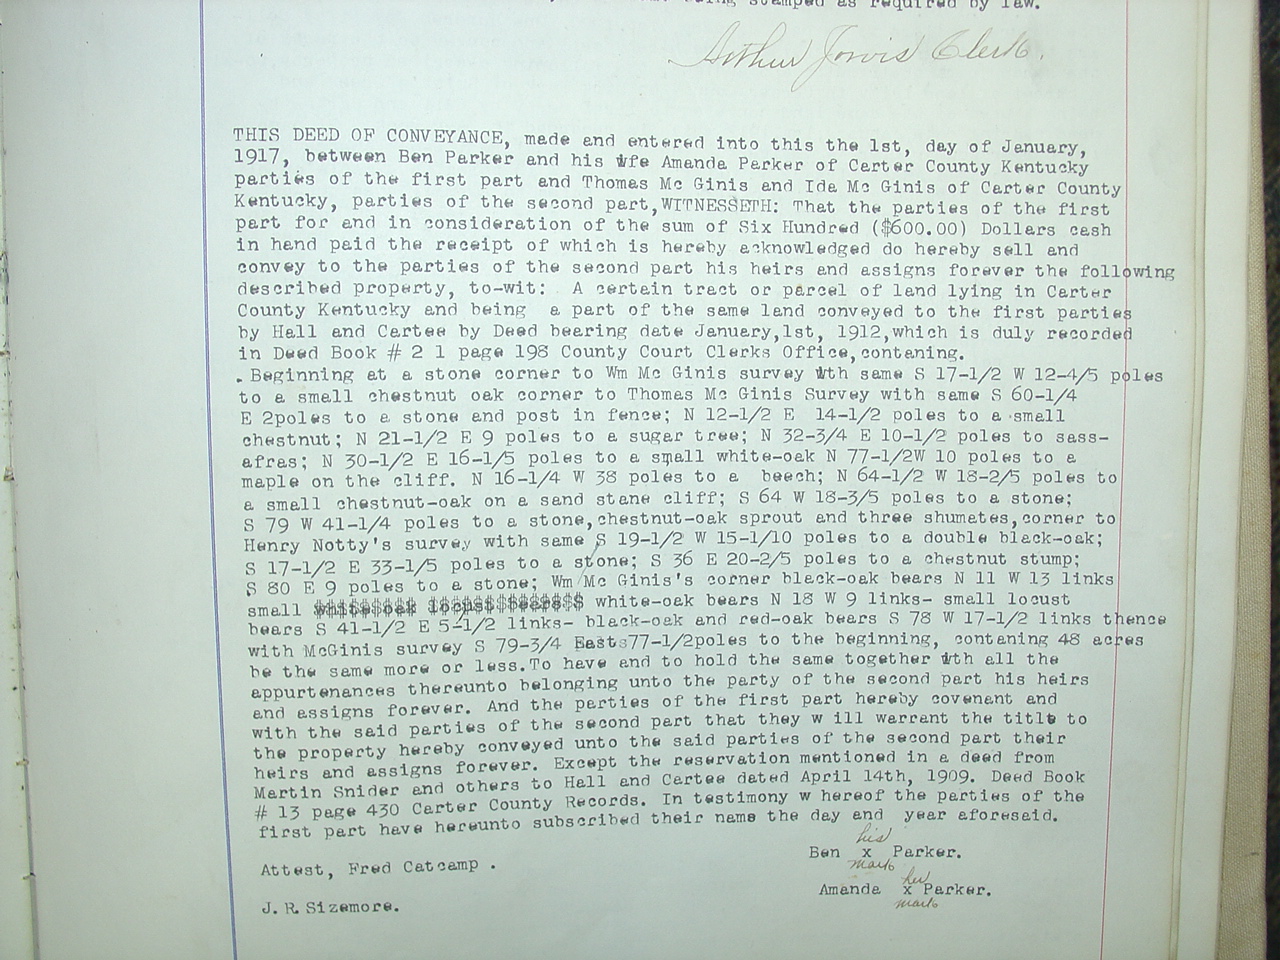 stamped as required by law.
Arthur Jarvis Clerk.
THIS DEED OF CONVEYANCE, made and entered into this the 1st, day of January,
1917, between Ben Parker and his wfe Amanda Parker of Carter County Kentucky
parties of the first part and Thomas Mc Ginis and Ida Mc Ginis of Carter County
Kentucky, parties of the second part,WITNESSETH: That the parties of the first
part for and in consideration of the sum of Six Hundred ($600.00) Dollars cash
in hand paid the receipt of which is hereby acknowledged do hereby sell and
convey to the parties of the second part his heirs and assigns forever the following
described property, to-wit: A certain tract or parcel of land lying in Carter
County Kentucky and being a part of the same land conveyed to the first parties
by Hall and Cartee by Deed bearing date January,1st, 1912,which is duly recorded
in Deed Book # 2 1 page 198 County Court Clerks Office,contaning.
.Beginning at a stone corner to Wm Mc Ginis survey wth same S 17-1/2 W 12-4/5 poles
to a small chestnut oak corner to Thomas Mc Ginis Survey with same S 60-1/4
E 2poles to a stone and post in fence; N 12-1/2 E 14-1/2 poles to a small
chestnut; N 21-1/2 E 9 poles to a sugar tree; N 32-3/4 E 10-1/2 poles to sass-
afras; N 30-1/2 E 16-1/5 poles to a small white-oak N 77-1/2W 10 poles to a
maple on the cliff. N 16-1/4 W 38 poles to a beech; N 64-1/2 W 18-2/5 poles to
a small chestnut-oak on a sand stane cliff; S 64 W 18-3/5 poles to a stone;
S 79 W 41-1/4 poles to a stone,chestnut-oak sprout and three shumates,corner to
Henry Notty's survey with same S 19-1/2 W 15-1/10 poles to a double black-oak;
S 17-1/2 E 33-1/5 poles to a stone; S 36 E 20-2/5 poles to a chestnut stump;
S 80 E 9 poles to a stone; Wm Mc Ginis's corner black-oak bears N 11 W 13 links
small white-oak bears N 18 W 9 links- small locust
bears S 41-1/2 E 5-1/2 links- black-oak and red-oak bears S 78 W 17-1/2 links thence
with McGinis survey S 79-3/4 East 77-1/2poles to the beginning, contaning 48 acres
be the same more or less.To have and to hold the same together wth all the
appurtenances thereunto belonging unto the party of the second part his heirs
and assigns forever. And the parties of the first part hereby covenant and
with the said parties of the second part that they w ill warrant the title to
the property hereby conveyed unto the said parties of the second part their
heirs and assigns forever. Except the reservation mentioned in a deed from
Martin Snider and others to Hall and Cartee dated April 14th, 1909. Deed Book
# 13 page 430 Carter County Records. In testimony w hereof the parties of the
first part have hereunto subscribed their name the day and year aforesaid.
his
Ben x Parker.
mark
Attest, Fred Catcamp .
her
Amanda x Parker.
mark
J.R.Sizemore.